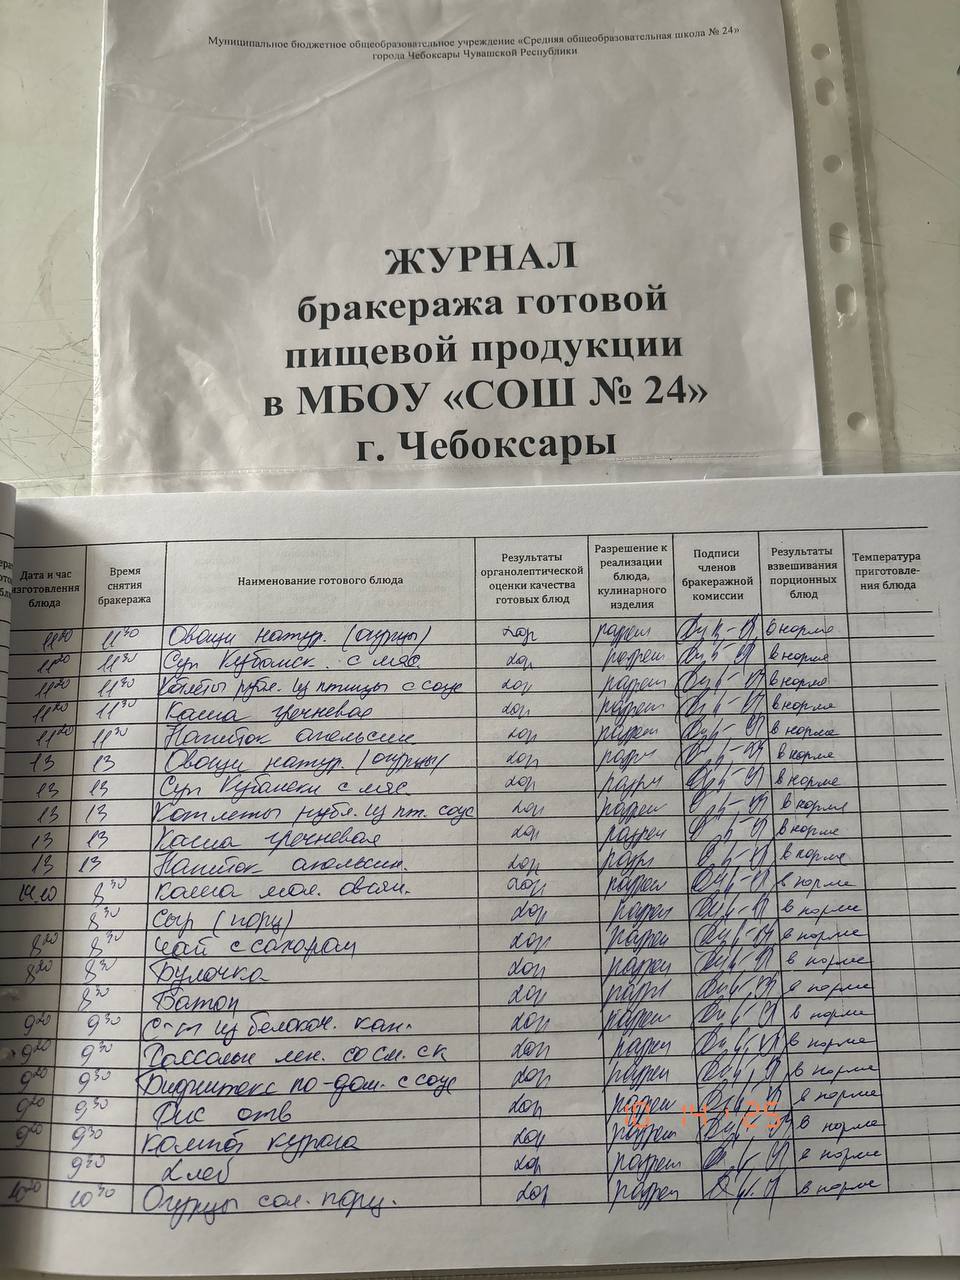 Муниципальное бюджетное общеобразовательное учреждение «Средняя общеобразовательная школа № 24»
города Чебоксары Чувашской Республики
ЖУРНАЛ
бракеража готовой
пищевой продукции
в МБОУ «СОШ № 24»
г. Чебоксары
Дата и час изготовления блюда Время снятия бракеража Наименование готового блюда Результаты органолептической оценки качества готовых блюд Разрешение к реализации блюда, кулинарного изделия Подписи членов бракеражной комиссии Результаты взвешивания порционных блюд Температура приготовле-ния блюда
11 20 11 30 Овощи натур. (огурцы) хор разреш в норме
11 20 11 30 Суп Кубанск. с мяс. хор разреш в норме
11 20 11 30 Котлеты рубл. из птицы с соус хор разреш в норме
11 20 11 30 Каша гречневая хор разреш в норме
11 20 11 30 Напиток апельсин хор разреш в норме
13 13 Овощи натур. (огурцы) хор разр в норме
13 13 Суп Кубански с мяс. хор разреш в норме
13 13 Котлеты рубл. из пт. соус хор разреш в норме
13 13 Каша гречневая хор разреш в норме
13 13 Напиток апельсин. хор разреш в норме
14.10 8 30 Каша мол. овсян. хор разреш в норме
8 30 Сыр (порц) хор разреш в норме
8 20 8 30 Чай с сахаром хор разреш в норме
8 20 8 30 Булочка хор разреш в норме
8 30 Батон хор разреш в норме
9 20 9 30 С-т из белокоч. кап. хор разреш в норме
9 20 9 30 Рассольн лен. со см. ск хор разреш в норме
9 20 9 30 Бифштекс по-дом. с соус хор разреш в норме
9 20 9 30 Рис отв хор разреш в норме
10 14 ' 25
9 20 9 30 Компот курага хор разреш в норме
9 30 Хлеб хор разреш в норме
10 20 10 30 Огурцы сол. порц. хор разреш в норме